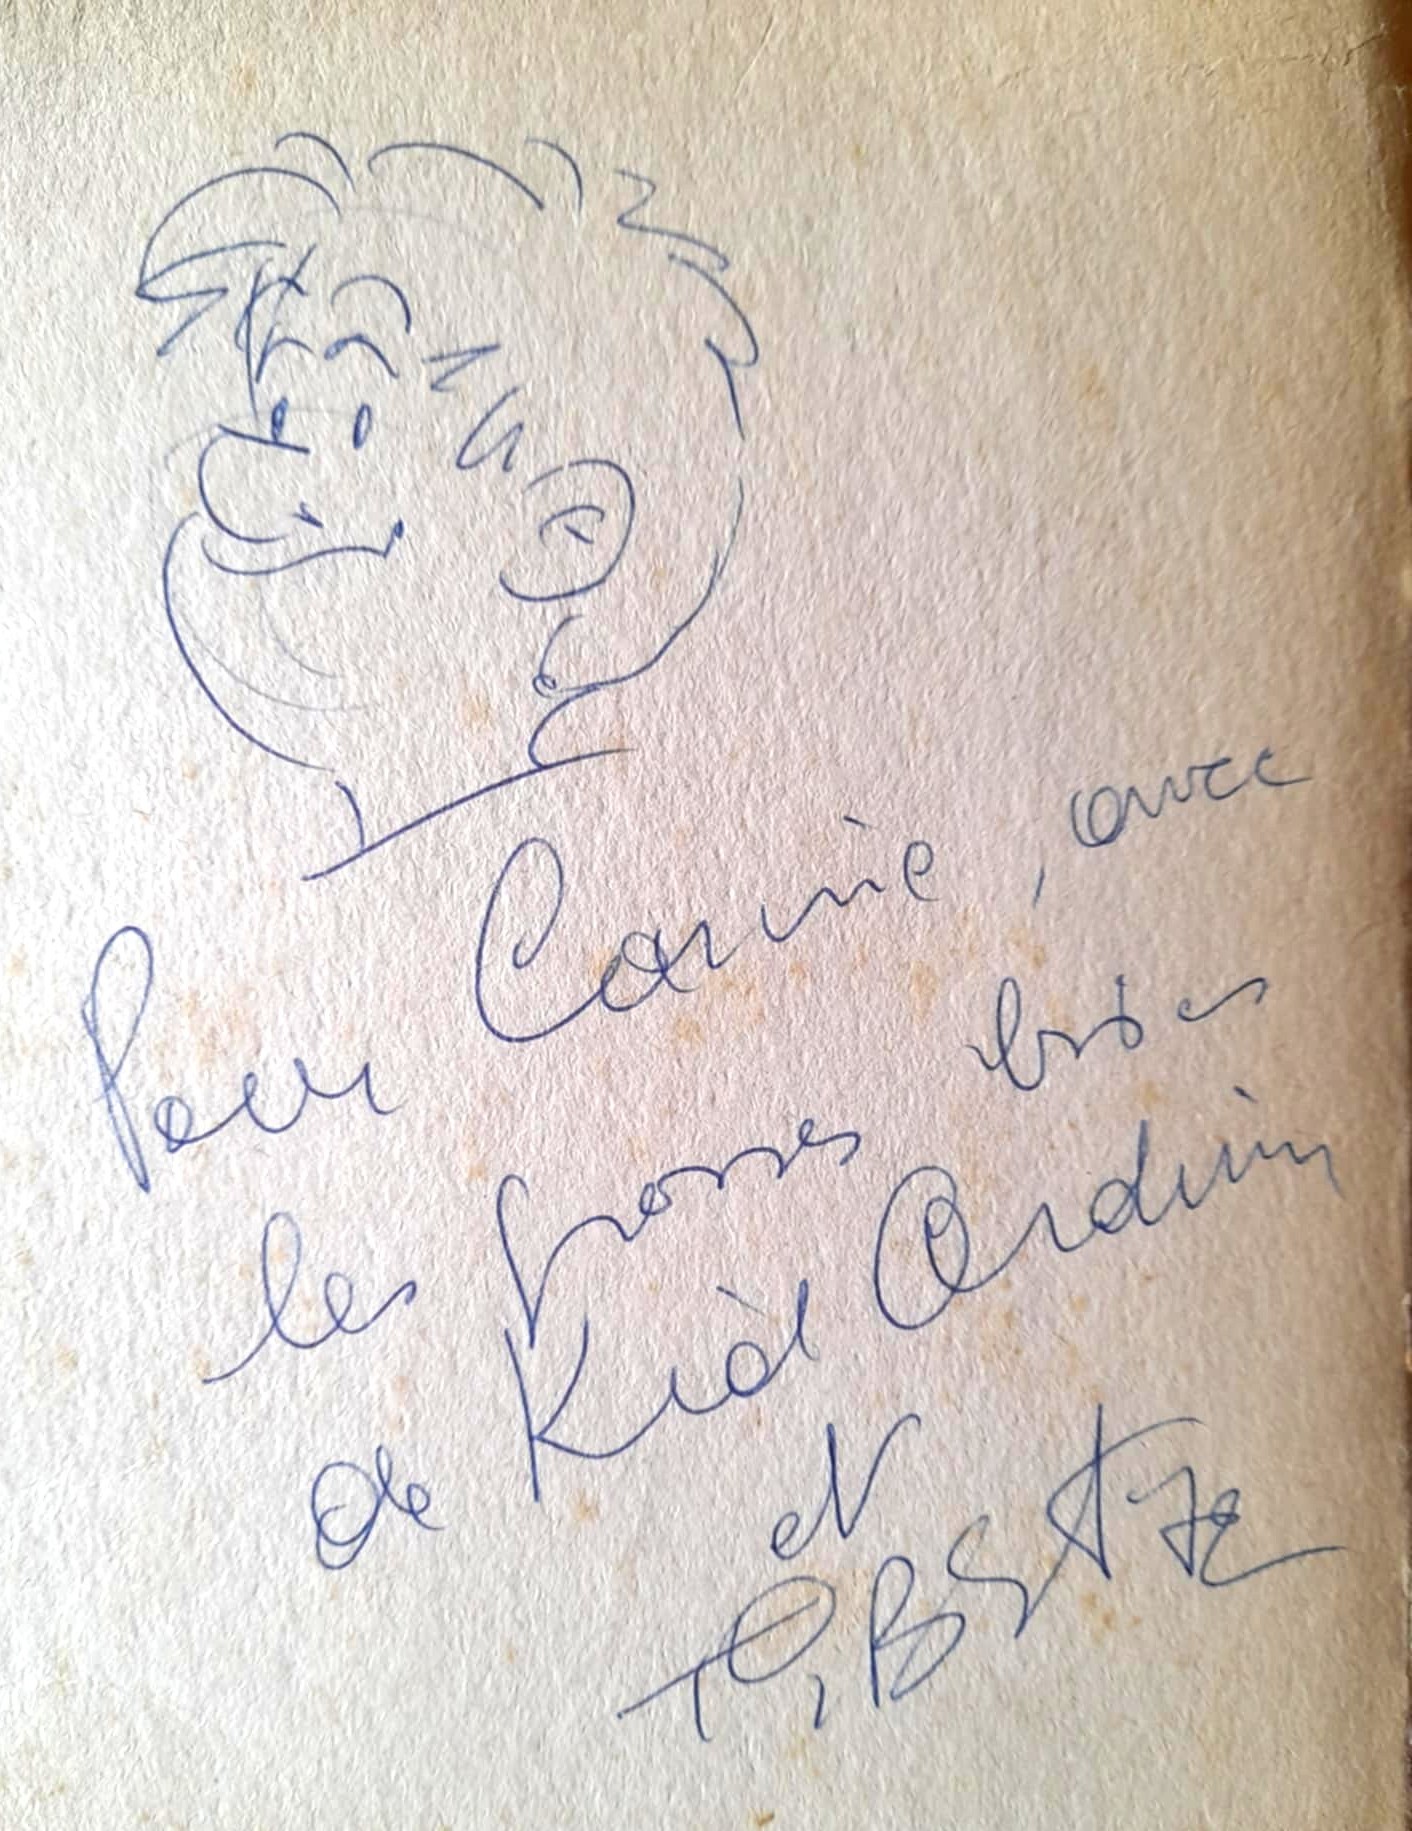 Pour Carine, avec
les grosses bises
de Kid Ordinn
et